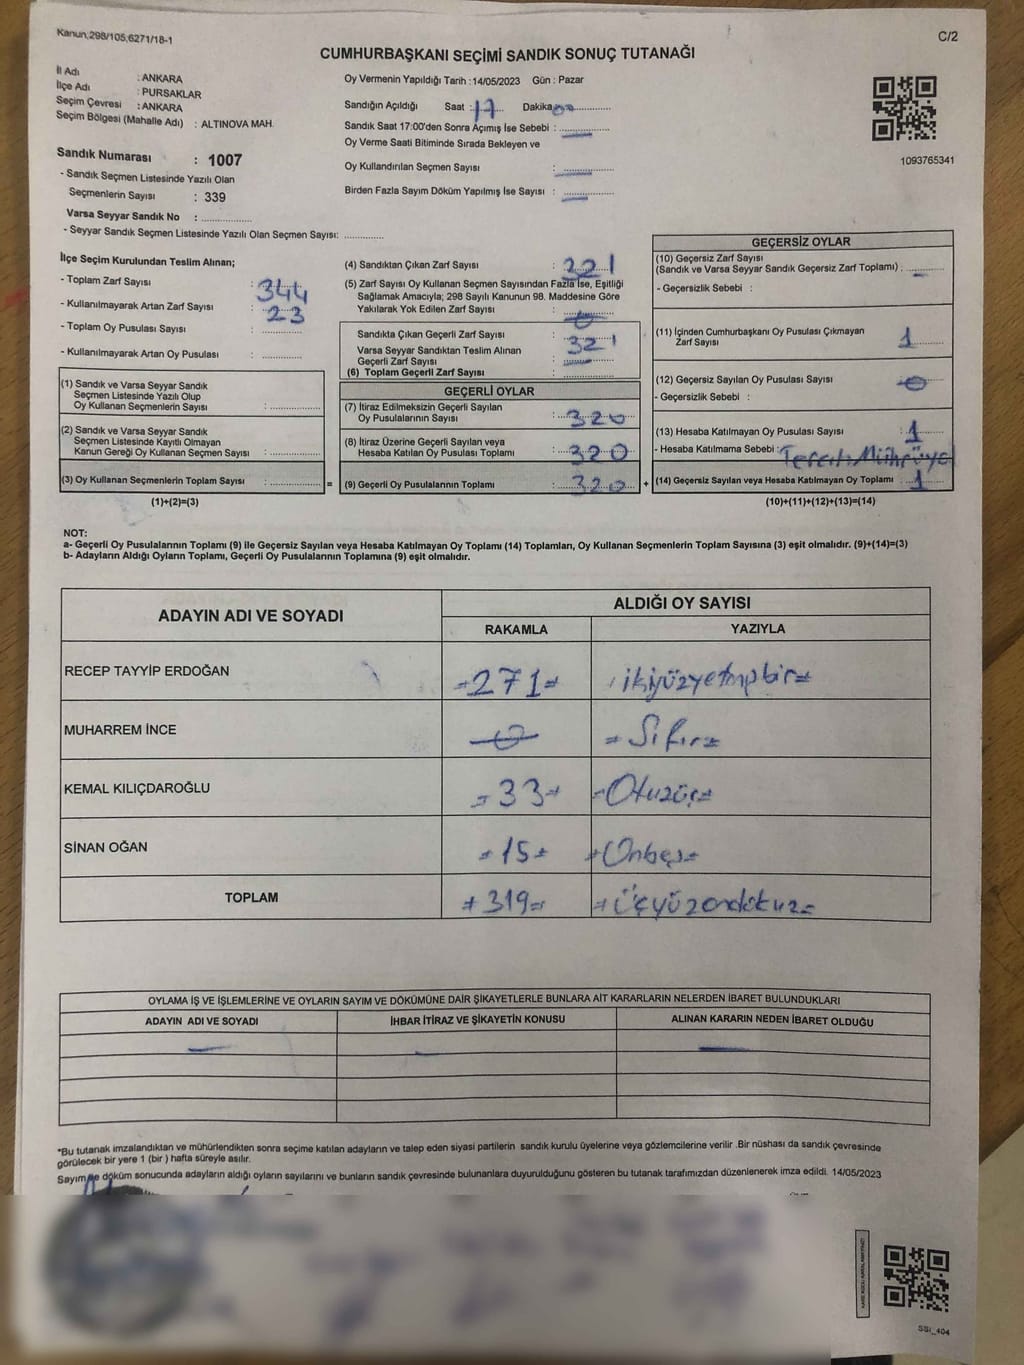 Kanun,298/105,6271/18-1
C/2
CUMHURBAŞKANI SEÇİMİ SANDIK SONUÇ TUTANAĞI
İl Adı : ANKARA
İlçe Adı : PURSAKLAR
Seçim Çevresi : ANKARA
Seçim Bölgesi (Mahalle Adı) : ALTINOVA MAH.
Sandık Numarası : 1007
- Sandık Seçmen Listesinde Yazılı Olan
Seçmenlerin Sayısı : 339
Varsa Seyyar Sandık No : ..............
- Seyyar Sandık Seçmen Listesinde Yazılı Olan Seçmen Sayısı: ..............
Oy Vermenin Yapıldığı Tarih :14/05/2023 Gün : Pazar
Sandığın Açıldığı Saat : 17 Dakika 00
Sandık Saat 17:00'den Sonra Açımış İse Sebebi :
Oy Verme Saati Bitiminde Sırada Bekleyen ve
Oy Kullandırılan Seçmen Sayısı :
Birden Fazla Sayım Döküm Yapılmış İse Sayısı :
1093765341
İlçe Seçim Kurulundan Teslim Alınan;
- Toplam Zarf Sayısı : 344
- Kullanılmayarak Artan Zarf Sayısı : 23
- Toplam Oy Pusulası Sayısı : ..............
- Kullanılmayarak Artan Oy Pusulası : ..............
(1) Sandık ve Varsa Seyyar Sandık
Seçmen Listesinde Yazılı Olup
Oy Kullanan Seçmenlerin Sayısı : ..............
(2) Sandık ve Varsa Seyyar Sandık
Seçmen Listesinde Kayıtlı Olmayan
Kanun Gereği Oy Kullanan Seçmen Sayısı : ..............
(3) Oy Kullanan Seçmenlerin Toplam Sayısı : .............. =
(1)+(2)=(3)
(4) Sandıktan Çıkan Zarf Sayısı : 321
(5) Zarf Sayısı Oy Kullanan Seçmen Sayısından Fazla İse, Eşitliği
Sağlamak Amacıyla; 298 Sayılı Kanunun 98. Maddesine Göre
Yakılarak Yok Edilen Zarf Sayısı : 0
Sandıkta Çıkan Geçerli Zarf Sayısı : 321
Varsa Seyyar Sandıktan Teslim Alınan
Geçerli Zarf Sayısı :
(6) Toplam Geçerli Zarf Sayısı : ..............
GEÇERLİ OYLAR
(7) İtiraz Edilmeksizin Geçerli Sayılan
Oy Pusulalarının Sayısı : 320
(8) İtiraz Üzerine Geçerli Sayılan veya
Hesaba Katılan Oy Pusulaları Toplamı : 320
(9) Geçerli Oy Pusulalarının Toplamı : 320 +
GEÇERSİZ OYLAR
(10) Geçersiz Zarf Sayısı
(Sandık ve Varsa Seyyar Sandık Geçersiz Zarf Toplamı) :
- Geçersizlik Sebebi :
(11) İçinden Cumhurbaşkanı Oy Pusulası Çıkmayan
Zarf Sayısı 1
(12) Geçersiz Sayılan Oy Pusulası Sayısı : 0
- Geçersizlik Sebebi :
(13) Hesaba Katılmayan Oy Pusulası Sayısı : 1
- Hesaba Katılmama Sebebi : Tercih Mührü yok
(14) Geçersiz Sayılan veya Hesaba Katılmayan Oy Toplamı : 1
(10)+(11)+(12)+(13)=(14)
NOT:
a- Geçerli Oy Pusulalarının Toplamı (9) ile Geçersiz Sayılan veya Hesaba Katılmayan Oy Toplamı (14) Toplamları, Oy Kullanan Seçmenlerin Toplam Sayısına (3) eşit olmalıdır. (9)+(14)=(3)
b- Adayların Aldığı Oyların Toplamı, Geçerli Oy Pusulalarının Toplamına (9) eşit olmalıdır.
ADAYIN ADI VE SOYADI ALDIĞI OY SAYISI
RAKAMLA YAZIYLA
RECEP TAYYİP ERDOĞAN =271= ikiyüzyetmişbir=
MUHARREM İNCE 0 = Sıfır=
KEMAL KILIÇDAROĞLU =33= =Otuzüç=
SİNAN OĞAN =15= =Onbeş=
TOPLAM =319= =Üçyüzondokuz=
OYLAMA İŞ VE İŞLEMLERİNE VE OYLARIN SAYIM VE DÖKÜMÜNE DAİR ŞİKAYETLERLE BUNLARA AİT KARARLARIN NELERDEN İBARET BULUNDUKLARI
ADAYIN ADI VE SOYADI İHBAR İTİRAZ VE ŞİKAYETİN KONUSU ALINAN KARARIN NEDEN İBARET OLDUĞU
*Bu tutanak imzalandıktan ve mühürlendikten sonra seçime katılan adayların ve talep eden siyasi partilerin sandık kurulu üyelerine veya gözlemcilerine verilir .Bir nüshası da sandık çevresinde
görülecek bir yere 1 (bir ) hafta süreyle asılır.
Sayım ve döküm sonucunda adayların aldığı oyların sayılarını ve bunların sandık çevresinde bulunanlara duyurulduğunu gösteren bu tutanak tarafımızdan düzenlenerek imza edildi. 14/05/2023